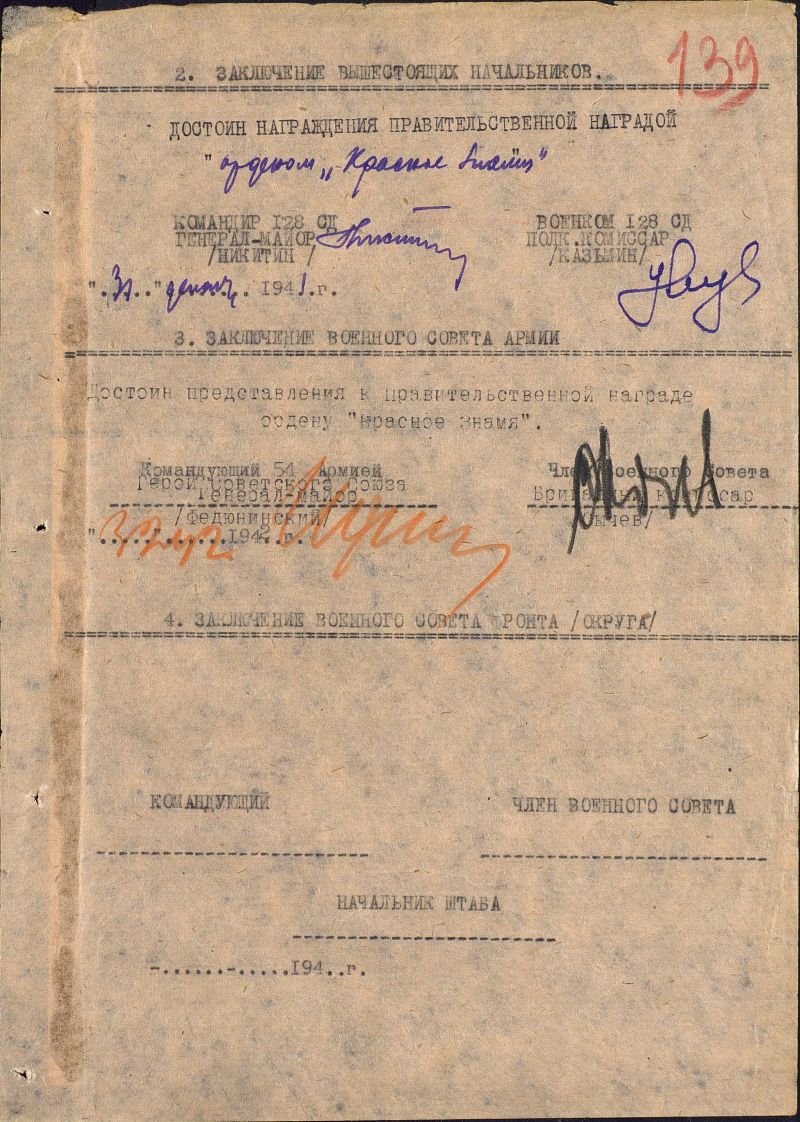 139
2. ЗАКЛЮЧЕНИЕ ВЫШЕСТОЯЩИХ НАЧАЛЬНИКОВ.
ДОСТОИН НАГРАЖДЕНИЯ ПРАВИТЕЛЬСТВЕННОЙ НАГРАДОЙ
" орденом „Красное Знамя"
КОМАНДИР 128 СД ВОЕНКОМ 128 СД
ГЕНЕРАЛ-МАЙОР ПОЛК.КОМИССАР
/НИКИТИН / /КАЗЬМИН/
"31" 1941.г.
3. ЗАКЛЮЧЕНИЕ ВОЕННОГО СОВЕТА АРМИИ
Достоин представления к правительственной награде
ордену "Красное Знамя".
Командующий 54 Армией Член Военного Совета
Герой Советского Союза
Генерал-майор
/Федюнинский/ /Сычев/
"..........1942.г.
4. ЗАКЛЮЧЕНИЕ ВОЕННОГО СОВЕТА ФРОНТА /ОКРУГА/
КОМАНДУЮЩИЙ ЧЛЕН ВОЕННОГО СОВЕТА
НАЧАЛЬНИК ШТАБА
-......-.....194..г.